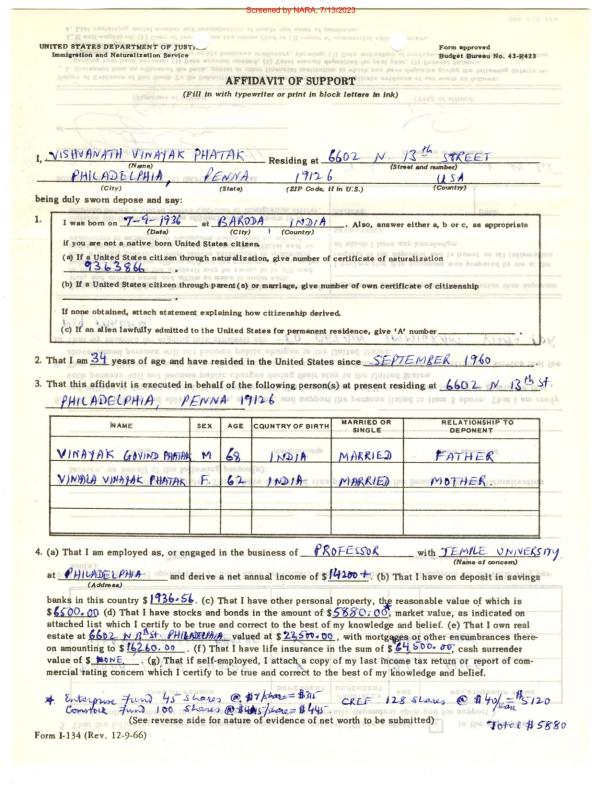 Screened by NARA, 7/13/2023
UNITED STATES DEPARTMENT OF JUSTI
Immigration and Naturalization Service
Form approved
Budget Bureau No. 43-R423
AFFIDAVIT OF SUPPORT
(Fill in with typewriter or print in block letters in ink)
I, VISHVANATH VINAYAK PHATAK Residing at 6602 N. 13th STREET
(Name) (Street and number)
PHILADELPHIA, PENNA 19126 USA
(City) (State) (ZIP Code, if in U.S.) (Country)
being duly sworn depose and say:
1. I was born on 7-9-1936 at BARODA, INDIA. Also, answer either a, b or c, as appropriate
(Date) (City) (Country)
if you are not a native born United States citizen.
(a) If a United States citizen through naturalization, give number of certificate of naturalization
9363866.
(b) If a United States citizen through parent(s) or marriage, give number of own certificate of citizenship
If none obtained, attach statement explaining how citizenship derived.
(c) If an alien lawfully admitted to the United States for permanent residence, give 'A' number
2. That I am 34 years of age and have resided in the United States since SEPTEMBER 1960
3. That this affidavit is executed in behalf of the following person(s) at present residing at 6602 N 13th St.
PHILADELPHIA, PENNA 19126
NAME SEX AGE COUNTRY OF BIRTH MARRIED OR SINGLE RELATIONSHIP TO DEPONENT
VINAYAK GOVIND PHATAK M 68 INDIA MARRIED FATHER
VIMALA VINAYAK PHATAK F. 62 INDIA MARRIED MOTHER.
4. (a) That I am employed as, or engaged in the business of PROFESSOR with TEMPLE UNIVERSITY.
(Name of concern)
at PHILADELPHIA and derive a net annual income of $14200+. (b) That I have on deposit in savings
(Address)
banks in this country $1936.56. (c) That I have other personal property, the reasonable value of which is
$6500.00 (d) That I have stocks and bonds in the amount of $5880.00*, market value, as indicated on
attached list which I certify to be true and correct to the best of my knowledge and belief. (e) That I own real
estate at 6602 N 13th St PHILADELPHIA valued at $22500.00, with mortgages or other encumbrances there-
on amounting to $16260.00. (f) That I have life insurance in the sum of $64,500.00, cash surrender
value of $ NONE. (g) That if self-employed, I attach a copy of my last income tax return or report of com-
mercial rating concern which I certify to be true and correct to the best of my knowledge and belief.
* Enterprise Fund 45 shares @ $7/share = $315 CREF 128 shares @ $40/share = $5120
Comstock Fund 100 shares @ /share = $445
(See reverse side for nature of evidence of net worth to be submitted) Total $5880
Form I-134 (Rev. 12-9-66)